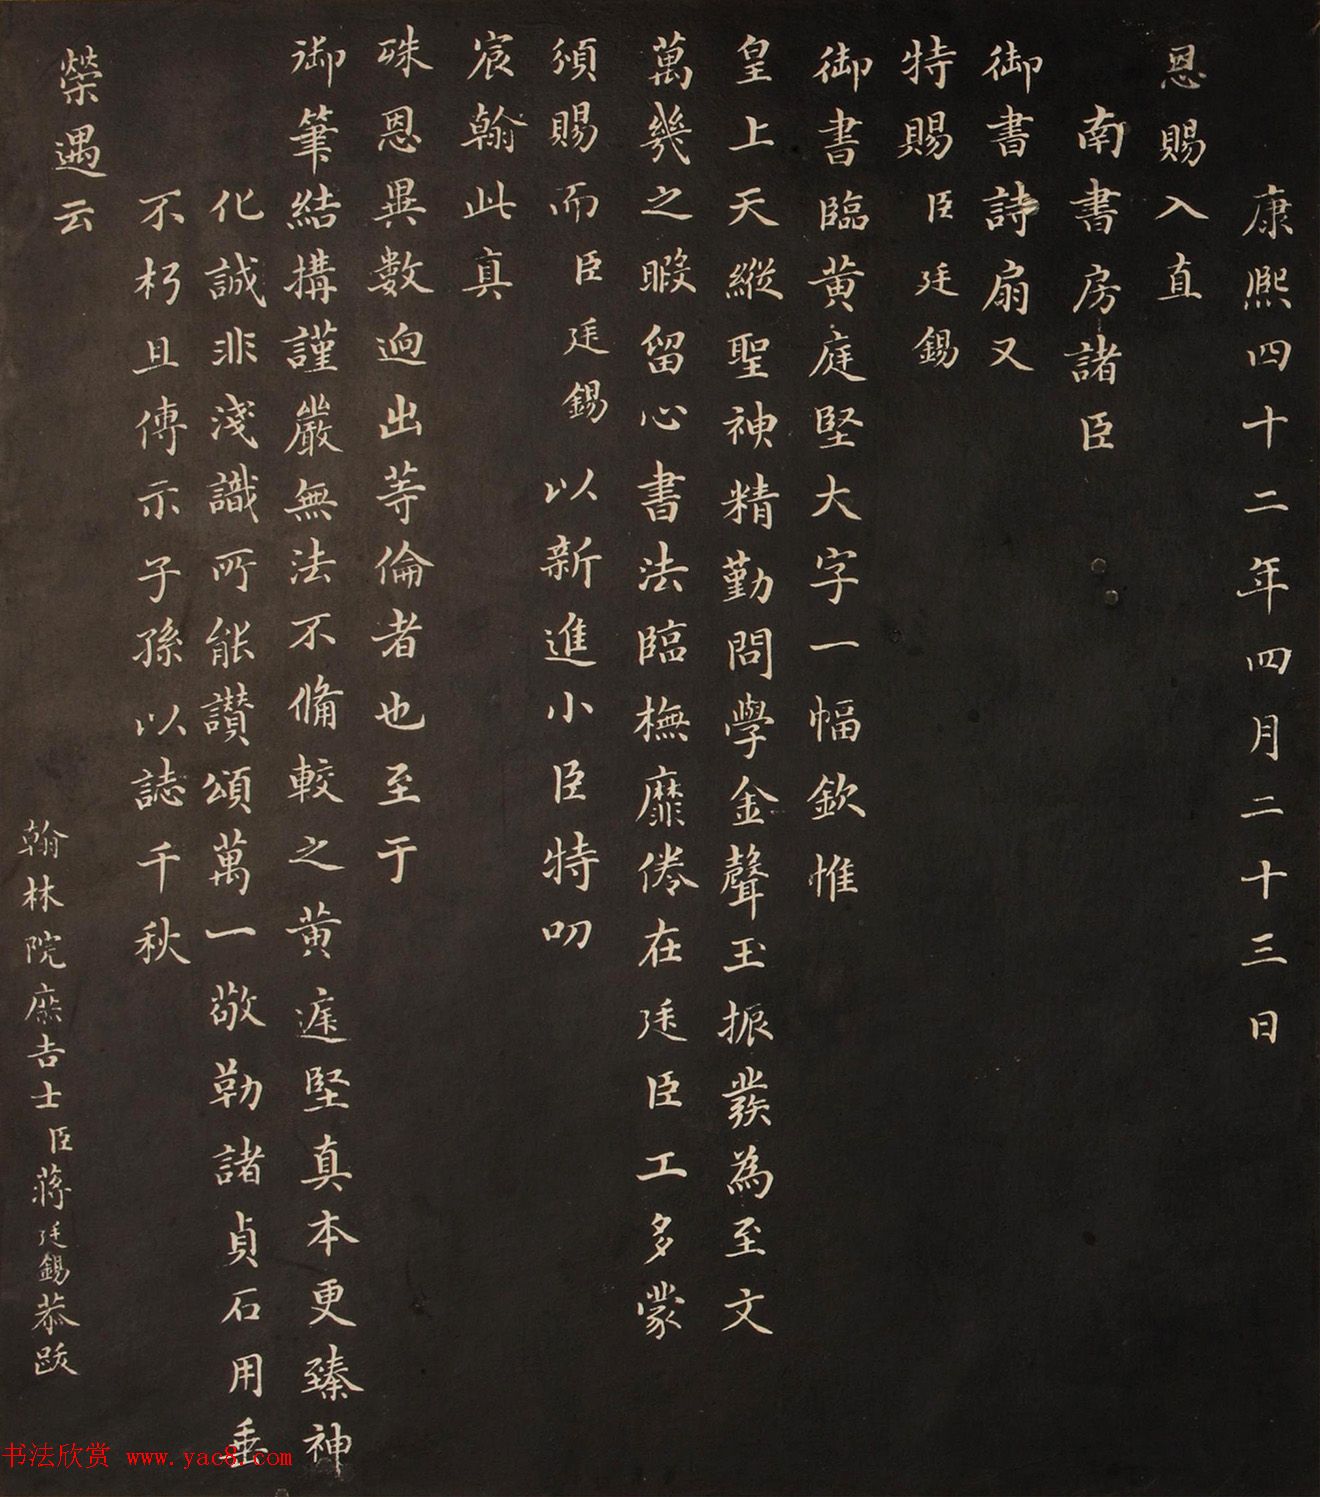 康熙四十二年四月二十三日
恩賜入直
南書房諸臣
御書詩扇又
特賜臣廷錫
御書臨黄庭堅大字一幅欽惟
皇上天縱聖神精勤問學金聲玉振發為至文
萬幾之暇留心書法臨橅靡倦在廷臣工多蒙
頒賜而臣廷錫以新進小臣特叨
宸翰此真
殊恩異數逈出等倫者也至于
御筆結搆謹嚴無法不備較之黄庭堅真本更臻神
化誠非淺識所能讃頌萬一敬勒諸貞石用垂
不朽且傳示子孫以誌千秋
榮遇云
翰林院庶吉士臣蔣廷錫恭跋
书法欣赏 www.yac8.com